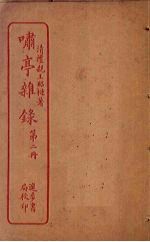 清禮親王昭槤著
嘯亭雜錄 第二冊
進步書
局校印